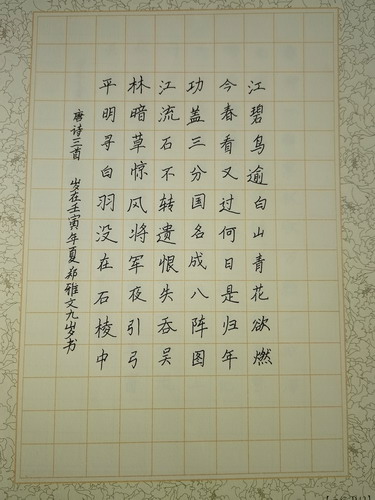 江碧鸟逾白山青花欲燃
今春看又过何日是归年
功盖三分国名成八阵图
江流石不转遗恨失吞吴
林暗草惊风将军夜引弓
平明寻白羽没在石棱中
唐诗三首 岁在壬寅年夏郑雅文九岁书